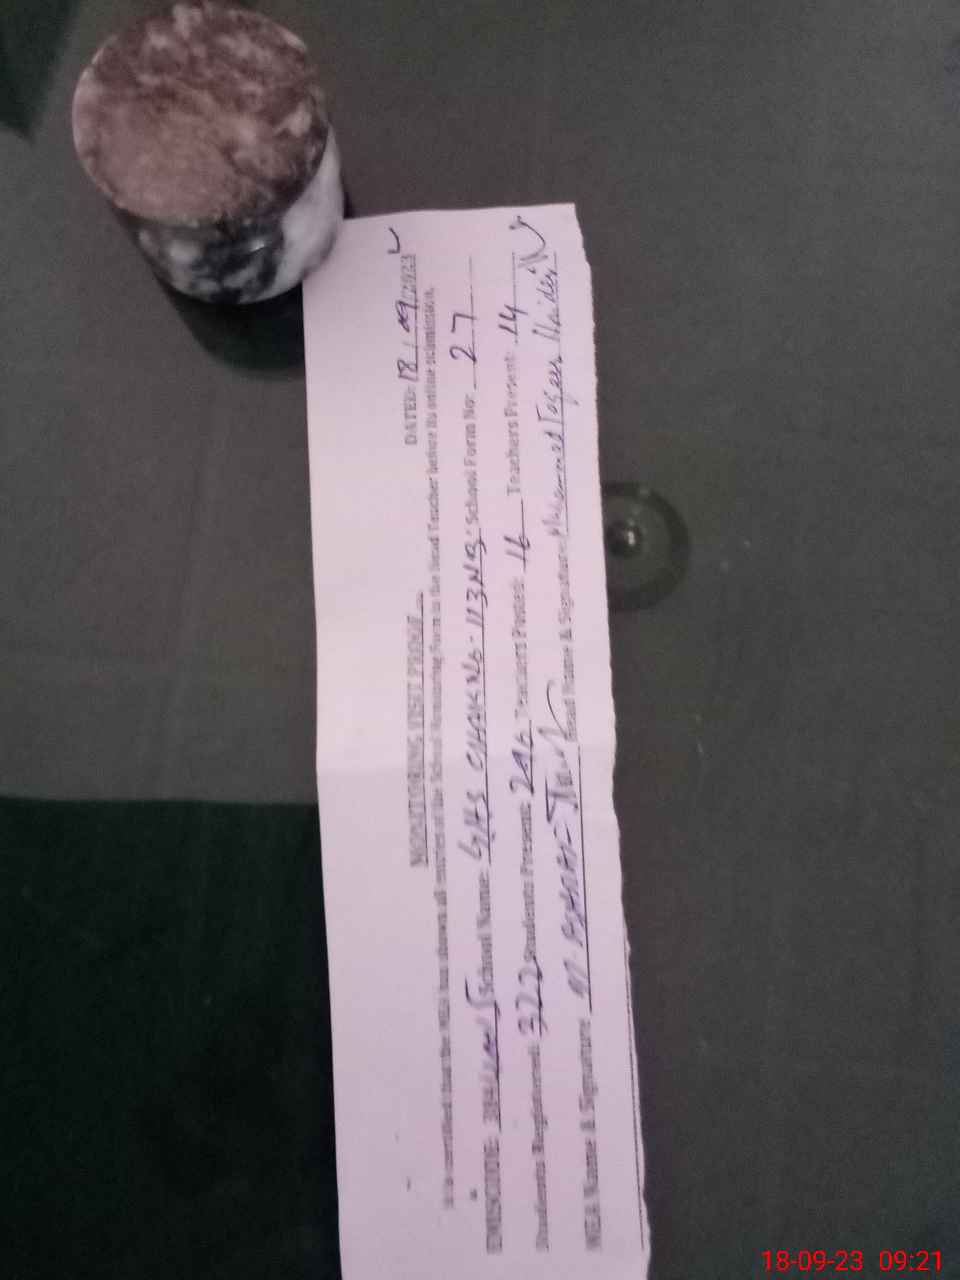 MONITORING VISIT PROOF
DATED: 18/09/2023
It is certified that the MEA has shown all entries of the School Monitoring Form to the Head Teacher before its online submission.
EMISCODE: School Name: GHS CHAK NO-113NB. School Form No: 27
Students Registered: 322 Students Present: 296 Teachers Posted: 16 Teachers Present: 14
MEA Name & Signature: Head Name & Signature: Muhammad Haider
18-09-23 09:21